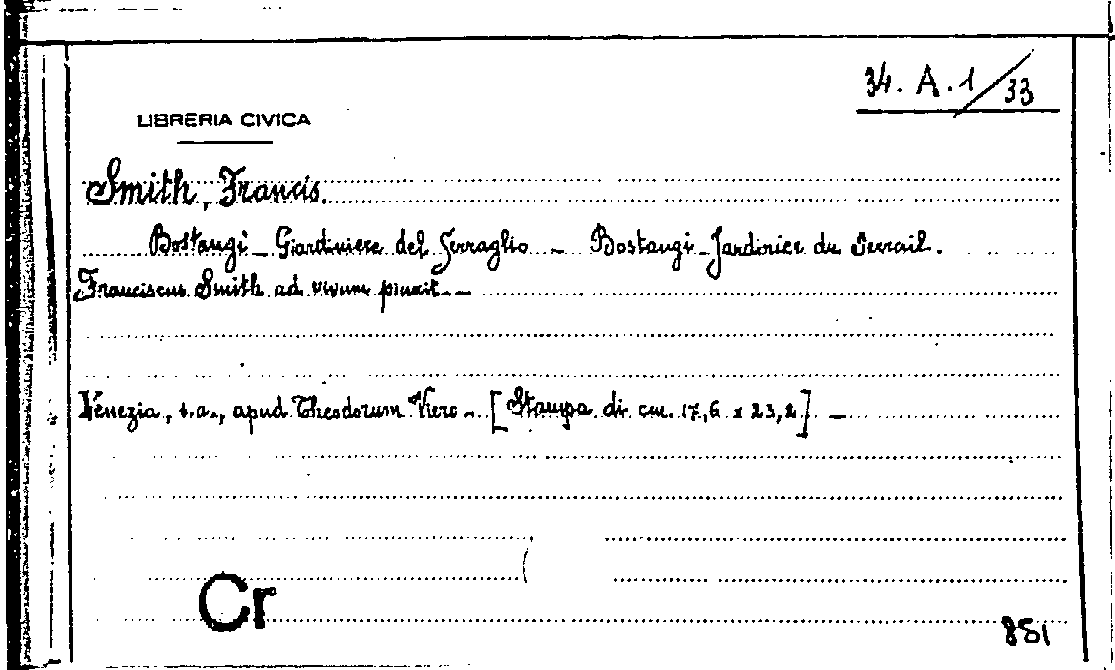 34. A. 1/33
LIBRERIA CIVICA
Smith, Francis.
Bostangi - Giardiniere del Serraglio - Bostangi - Jardinier du Serrail.
Franciscus Smith ad vivum pinxit. -
Venezia, s.a., apud Theodorum Viero - [Stampa di cm. 17,6 x 23,2] -
Cr
851